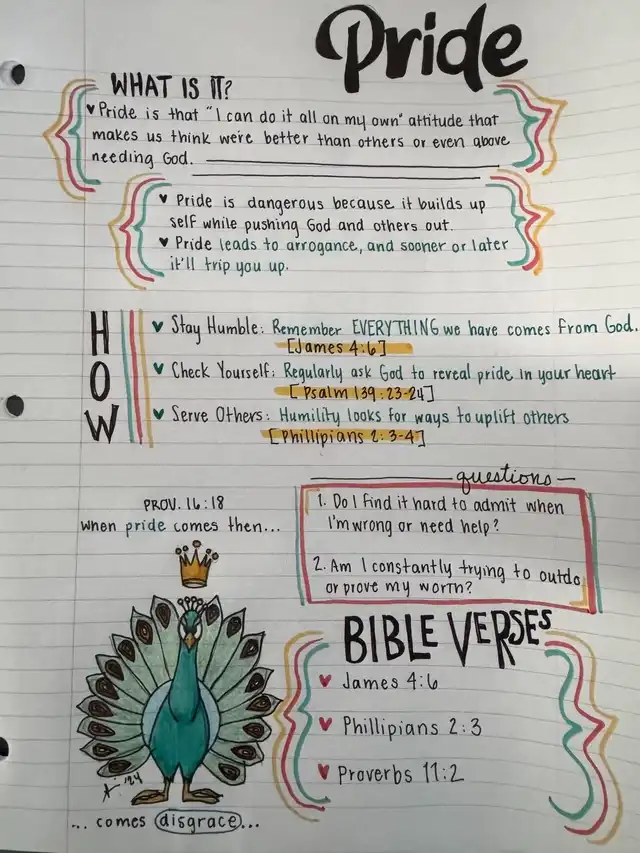 Pride
WHAT IS IT?
♥ Pride is that "I can do it all on my own" attitude that
makes us think we're better than others or even above
needing God.
♥ Pride is dangerous because it builds up
self while pushing God and others out.
♥ Pride leads to arrogance, and sooner or later
it'll trip you up.
HOW
♥ Stay Humble: Remember EVERYTHING we have comes from God.
[James 4:6]
♥ Check Yourself: Regularly ask God to reveal pride in your heart
[Psalm 139:23-24]
♥ Serve Others: Humility looks for ways to uplift others
[Phillipians 2:3-4]
questions
1. Do I find it hard to admit when
I'm wrong or need help?
2. Am I constantly trying to outdo
or prove my worth?
PROV. 16:18
when pride comes then...
'24
... comes disgrace...
BIBLE VERSES
♥ James 4:6
♥ Phillipians 2:3
♥ Proverbs 11:2